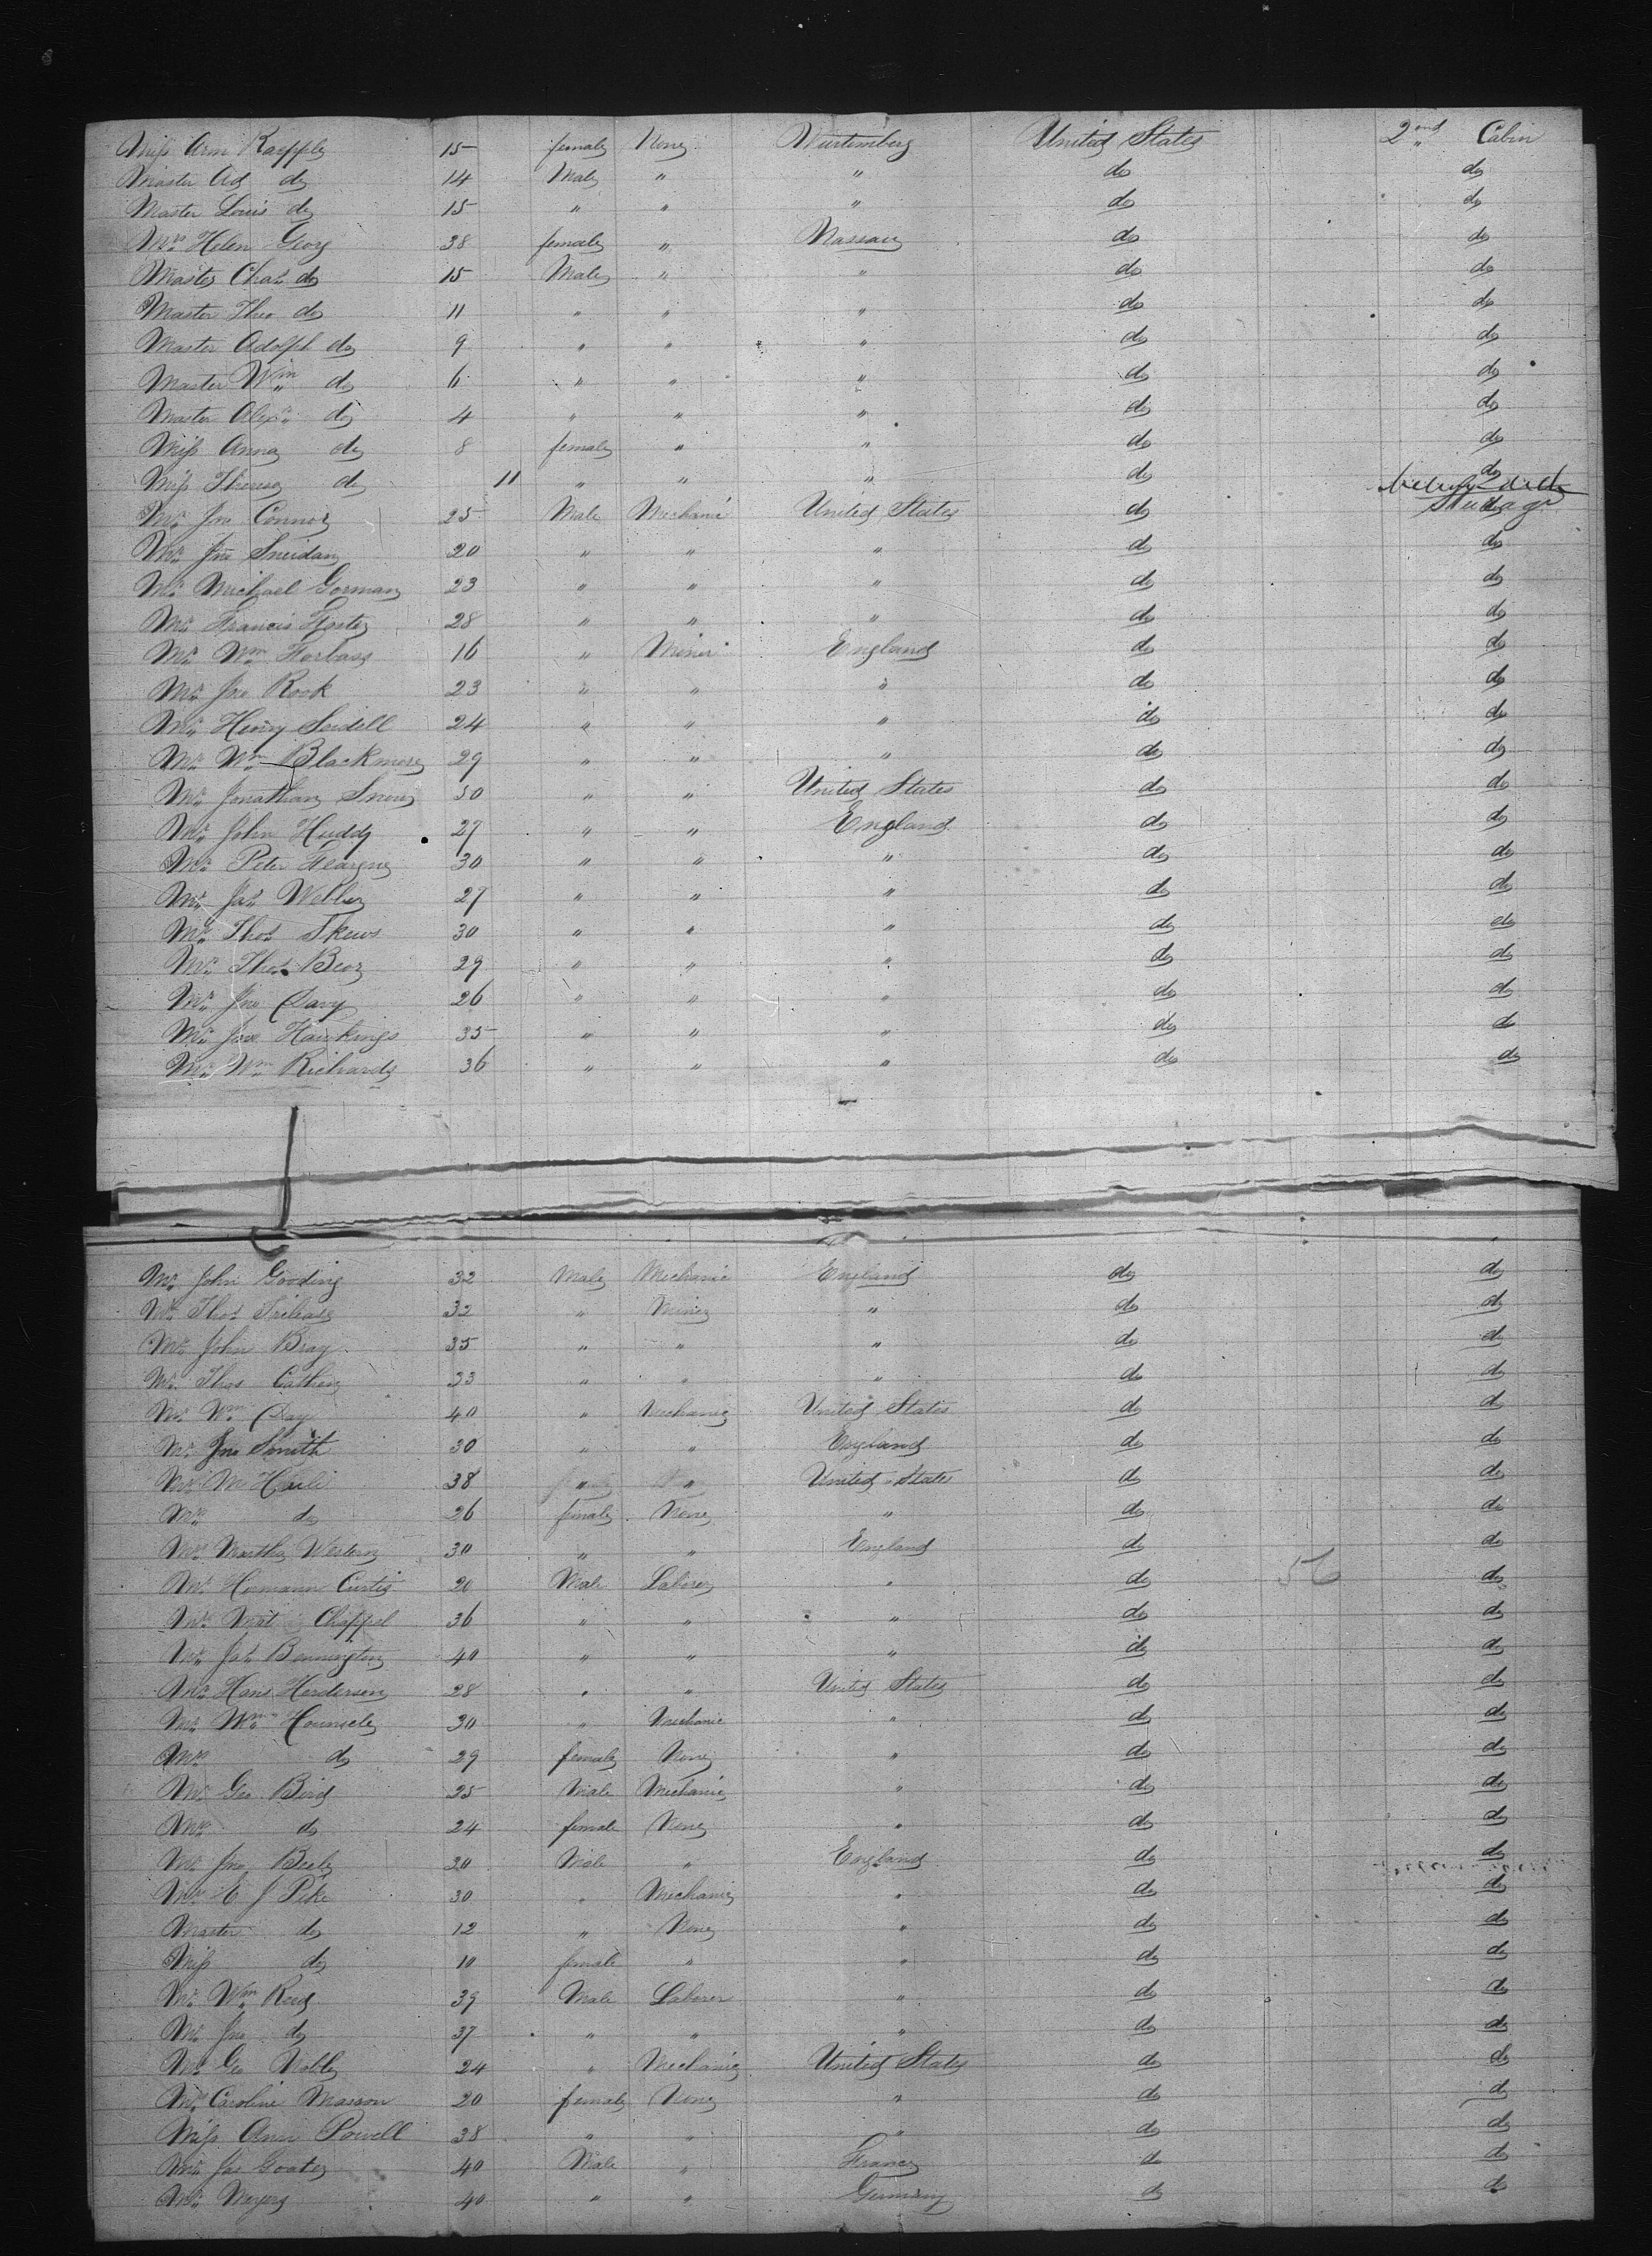 Miss Arm Kaepple 15 female None Wurtemberg United States 2nd Cabin
Master Ad do 14 Male " " do do
Master Louis do 15 " " " do do
Mrs Helen Georg 38 female " Nassau do do
Master Chas do 15 Male " " do do
Master Theo do 11 " " " do do
Master Adolph do 9 " " " do do
Master Wm do 6 " " " do do
Master Alexr do 4 " " " do do
Miss Anna do 8 female " " do do
Miss Therese do 11 " " " do do
Mr Jno Connor 25 Male Mechanic United States do Steerage
Mr Jno Sneidan 20 " " " do do
Mr Michael Gorman 23 " " " do do
Mr Francis Foster 28 " " " do do
Mr Wm Forbass 16 " Miner England do do
Mr Jno Rook 23 " " " do do
Mr Henry Seidell 24 " " " do do
Mr Wm Blackmore 29 " " " do do
Mr Jonathan Snow 30 " " United States do do
Mr John Huddy 27 " " England do do
Mr Peter 30 " " " do do
Mr Jas Webber 27 " " " do do
Mr Thos Skews 30 " " " do do
Mr Thos Beor 29 " " " do do
Mr Jno Davy 26 " " " do do
Mr Jno Hawkings 35 " " " do do
Mr Wm Richards 36 " " " do do
Mr John Gooding 32 Male Mechanic England do do
Mr Thos Trebase 32 " Miner " do do
Mr John Bray 35 " " " do do
Mr Thos Cathen 33 " " " do do
Mr Wm Day 40 " Mechanic United States do do
Mr Jno Smith 30 " " England do do
Mr M 38 " " United States do do
Mrs do 26 female None " do do
Mrs Martha Western 30 " " England do do
Mr Hermann Curtis 20 Male Laborer " do 56 do
Mr Mat Chappel 36 " " " do do
Mr Jas Bennington 40 " " " do do
Mr Hans Henderson 28 " " United States do do
Mr Wm Hounsele 30 " Mechanic " do do
Mrs do 29 female None " do do
Mr Geo Bird 25 Male Mechanic " do do
Mrs do 24 female None " do do
Mr Jno Beele 30 Male " England do do
Mr E J Pike 30 " Mechanic " do do
Master do 12 " None " do do
Miss do 10 female " " do do
Mr Wm Reed 39 Male Laborer " do do
Mr Jno do 37 " " " do do
Mr Geo Noble 24 " Mechanic United States do do
Mrs Caroline Masson 20 female None " do do
Miss Ann Powell 38 " " " do do
Mr Jas Goater 40 Male " France do do
Mr Meyers 40 " " Germany do do